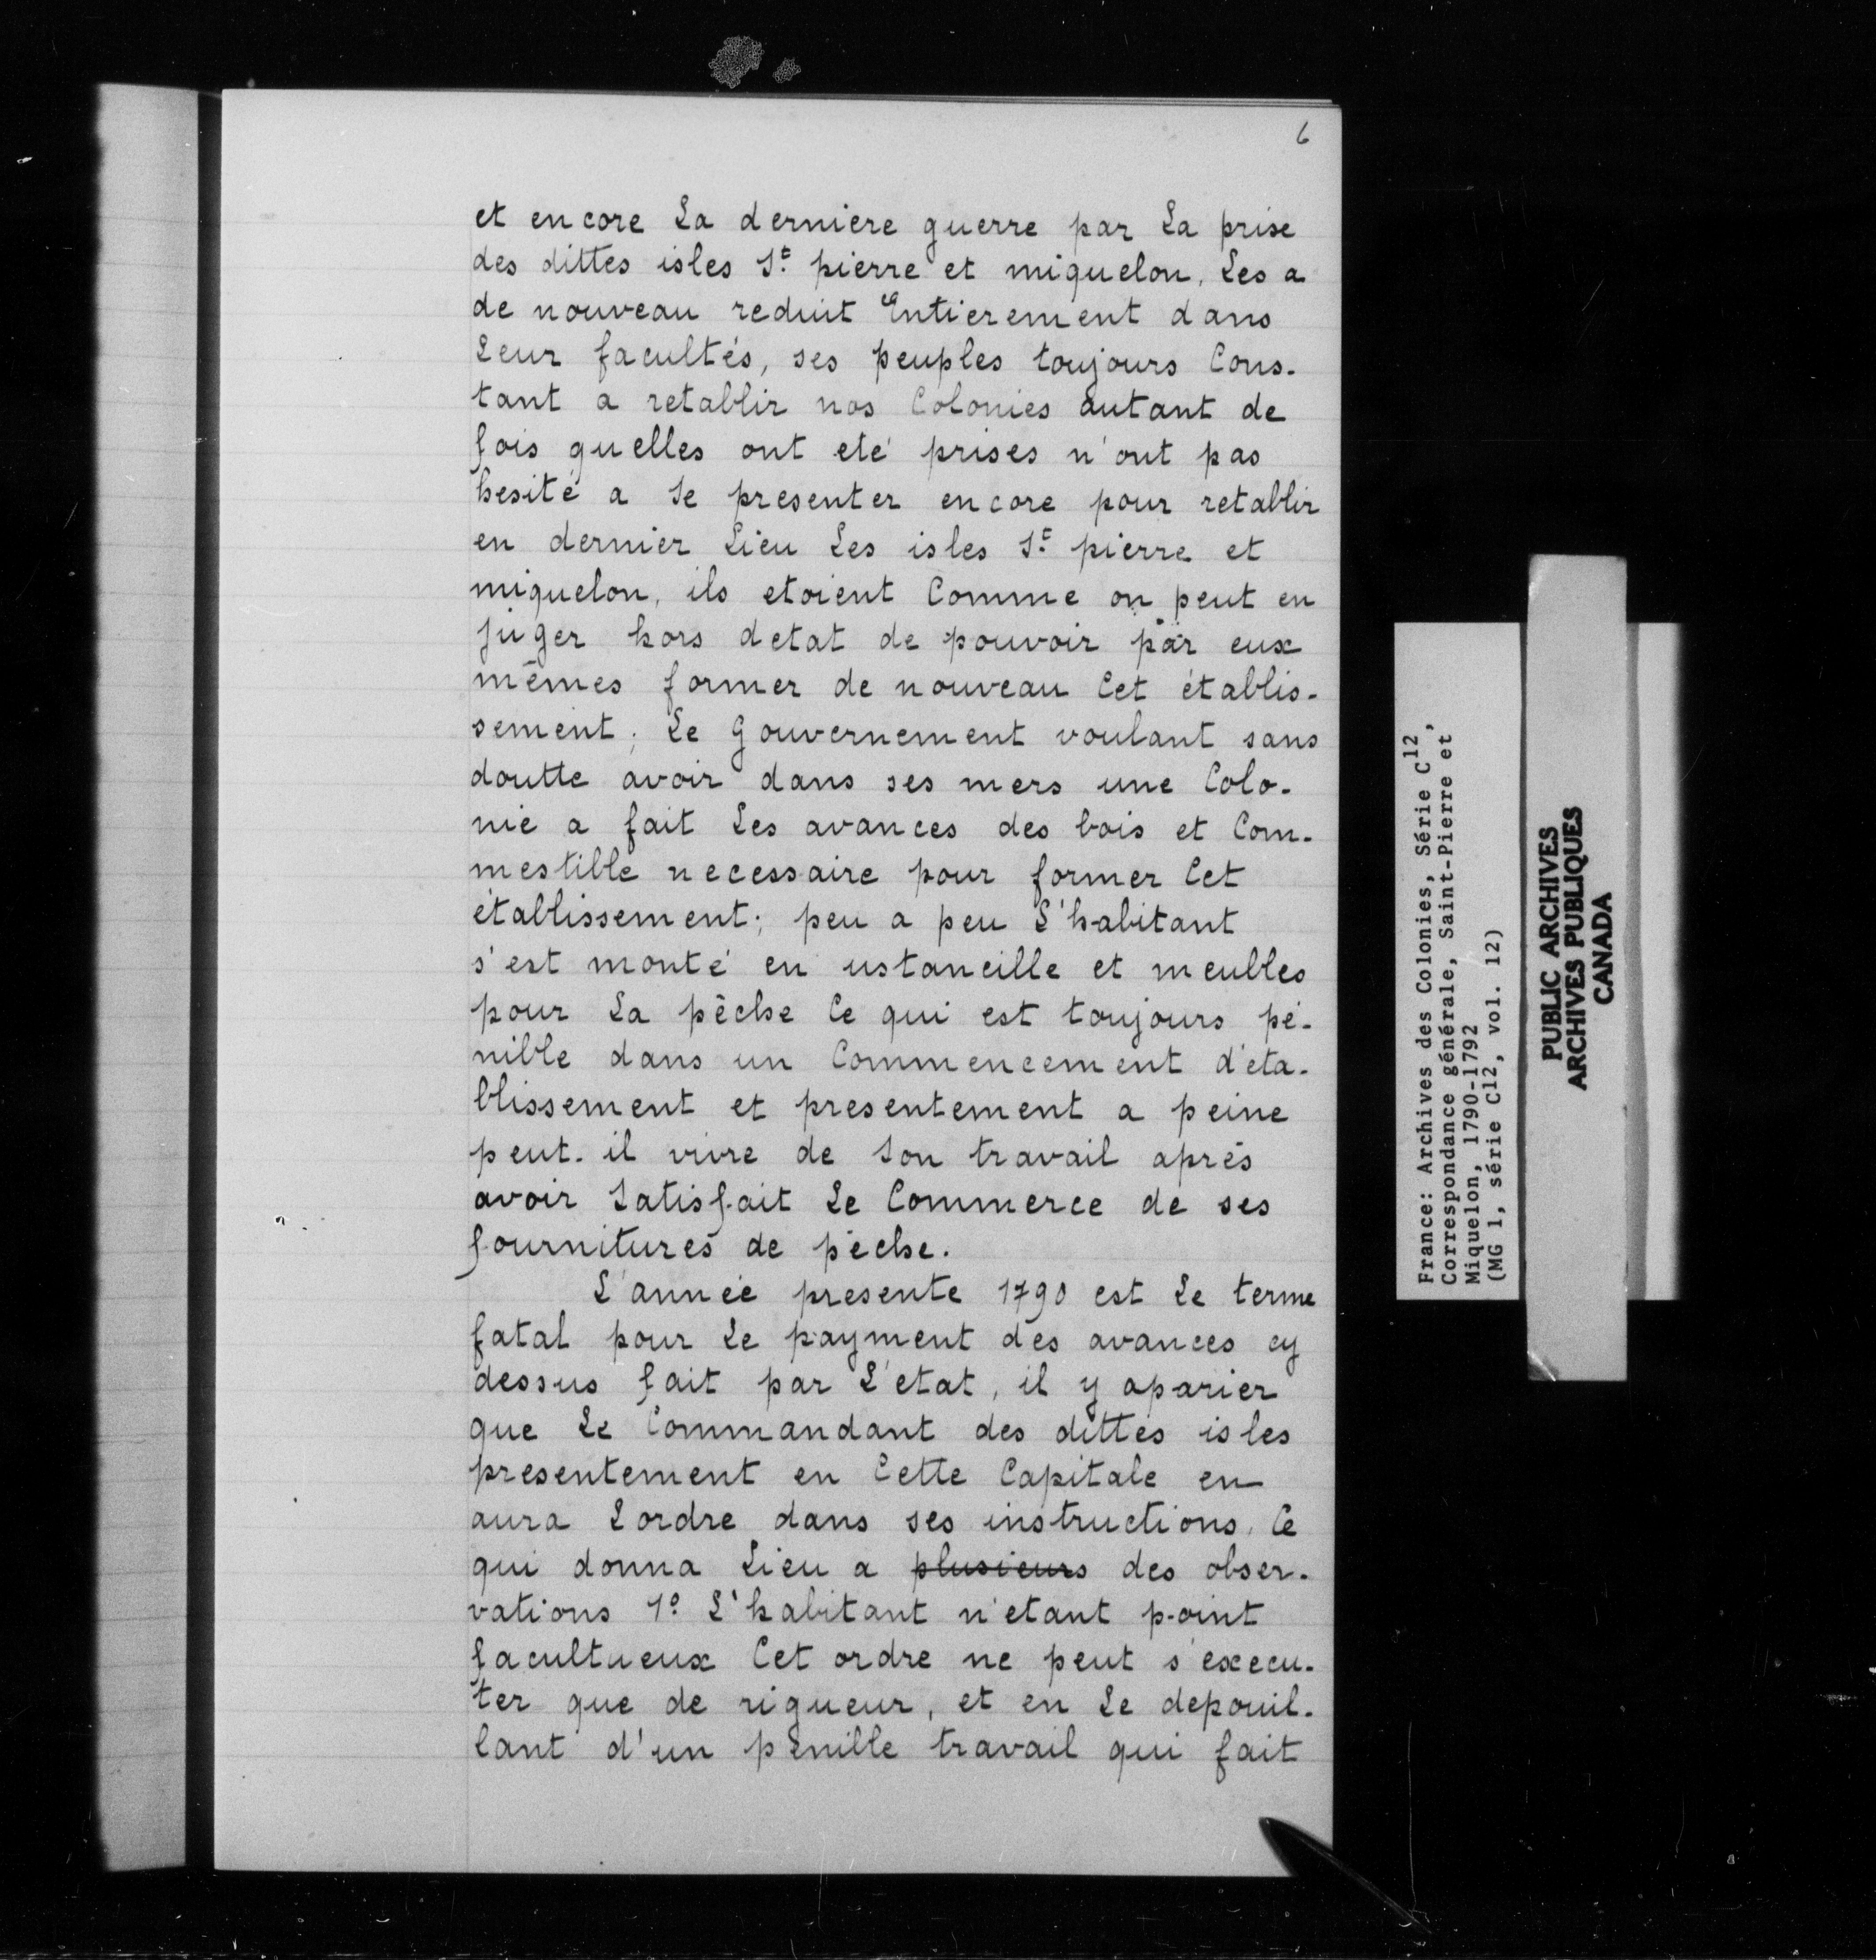 6
et encore La derniere guerre par La prise
des dittes isles St. pierre et miquelon, Les a
de nouveau reduit Entierement dans
Leur facultés, ses peuples toujours Cons-
tant a retablir nos Colonies autant de
fois quelles ont eté prises n'ont pas
hesité a se presenter encore pour retablir
en dernier Lieu Les isles St. pierre et
miquelon, ils etoient Comme on peut en
juger hors detat de pouvoir par eux
mêmes former de nouveau Cet établis-
sement; Le Gouvernement voulant sans
doutte avoir dans ses mers une Colo-
nie a fait Les avances des bois et Com-
mestible necessaire pour former Cet
établissement; peu a peu L'habitant
s'est monté en ustancille et meubles
pour La pêche Ce qui est toujours pé-
nible dans un Commencement d'éta-
blissement et presentement a peine
peut-il vivre de son travail aprés
avoir Satisfait Le Commerce de ses
fournitures de pêche.
L'année presente 1790 est Le terme
fatal pour Le payment des avances cy
dessus fait par L'etat, il y aparier
que Le Commandant des dittes isles
presentement en Cette Capitale en
aura Lordre dans ses instructions, Ce
qui donna Lieu a plusieurs des obser-
vations 1º L'habitant n'etant point
facultueux Cet ordre ne peut s'execu-
ter que de rigueur, et en Le depouil-
lant d'un penille travail qui fait
France: Archives des Colonies, Série C12,
Correspondance générale, Saint-Pierre et
Miquelon, 1790-1792
(MG 1, série C12, vol. 12)
PUBLIC ARCHIVES
ARCHIVES PUBLIQUES
CANADA